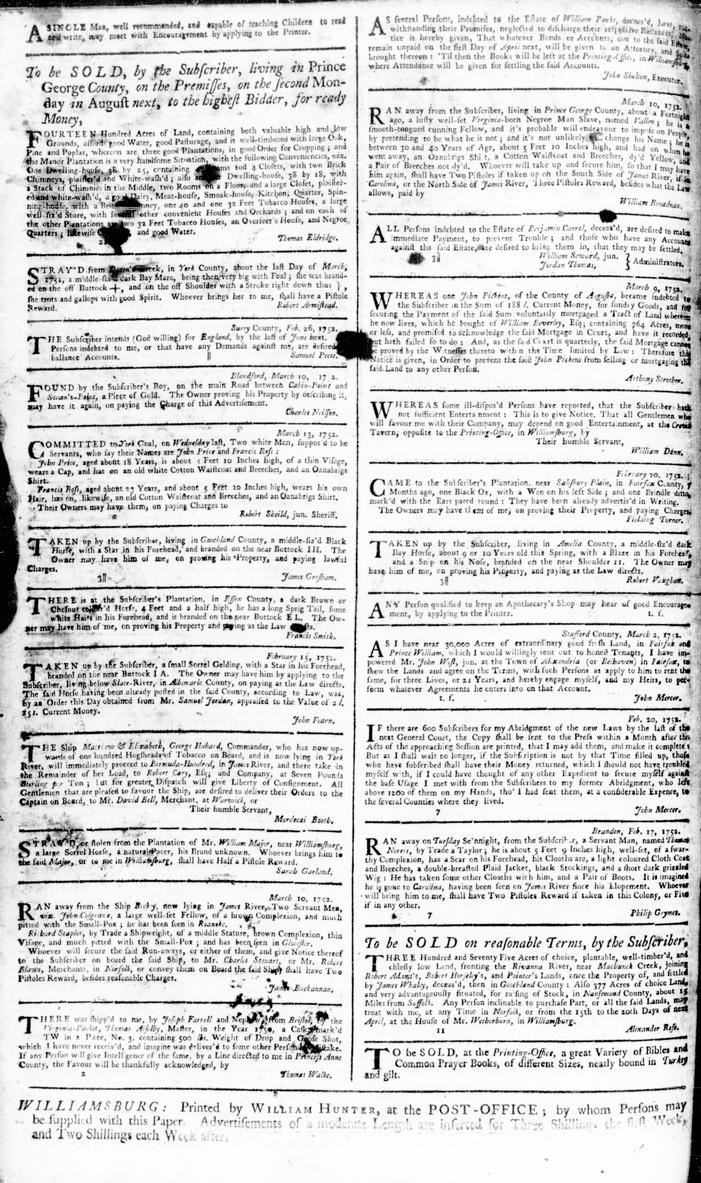 A SINGLE Man, well recommended, and capable of teaching Children to read
and write, may meet with Encouragement by applying to the Printer.
To be SOLD, by the Subscriber, living in Prince
George County, on the Premisses, on the second Mon-
day in August next, to the highest Bidder, for ready
Money,
FOURTEEN Hundred Acres of Land, containing both valuable high and low
Grounds, afford good Water, good Pasturage, and is well-timbered with large Oak,
Pine and Poplar, whereon are three good Plantations, in good Order for Cropping; and
the Manor Plantation is a very handsome Situation, with the following Conveniences, viz.
One Dwelling-house, 38 by 25, containing and 3 Closets, with two Brick
Chimnies, plaister'd and White-wash'd; also Dwelling-house, 38 by 18, with
a Stack of Chimnies in the Middle, two Rooms on a Floor, and a large Closet, plaister'd
and white-wash'd, a good Dairy, Meat-house, Smoak-house, Kitchen, Quarter, Spin-
ning-house, with a Brick Chimney, one 40 and one 32 Feet Tobacco Houses, a large
well-fix'd Store, with other convenient Houses and Orchards; and on each of
the other Plantations two 32 Feet Tobacco Houses, an Overseer's House, and Negroe
Quarters; likewise and good Water.
Thomas Eldridge.
STRAY'D from Creek, in York County, about the last Day of March,
1751, a middle-siz'd dark Bay Mare, being then very big with Foal; she was brand-
ed on the off Buttock, and on the off Shoulder with a Stroke right down thus
she trots and gallops with good Spirit. Whoever brings her to me, shall have a Pistole
Reward. Robert Armistead.
Surry County, Feb. 26, 1752.
THE Subscriber intends (God willing) for England, by the last of June next.
Persons indebted to me, or that have any Demands against me, are desired
ballance Accounts. Samuel Peete.
Blandford, March 10, 1752.
FOUND by the Subscriber's Boy, on the main Road between Cabin-Point and
Swan's-Point, a Piece of Gold. The Owner proving his Property by describing it,
may have it again, on paying the Charge of this Advertisement.
Charles Neilson.
March 13, 1752.
COMMITTED to York Goal, on Wednesday last, Two white Men, suppos'd to be
Servants, who say their Names are John Price and Francis Ross:
John Price, aged about 18 Years, is about 5 Feet 10 Inches high, of a thin Visage,
wears a Cap, and has on an old white Cotton Waistcoat and Breeches, and an Oznabrigs
Shirt.
Francis Ross, aged about 27 Years, and about 5 Feet 10 Inches high, wears his own
Hair, has on, likewise, an old Cotton Waistcoat and Breeches, and an Oznabrigs Shirt.
Their Owners may have them, on paying Charges to
Robert Sheild, jun. Sheriff.
TAKEN up by the Subscriber, living in Goochland County, a middle-siz'd Black
Horse, with a Star in his Forehead, and branded on the near Buttock IH. The
Owner may have him of me, on proving his Property, and paying lawful
Charges.
3|| James Gresham.
THERE is at the Subscriber's Plantation, in Essex County, a dark Brown or
Chesnut colour'd Horse, 4 Feet and a half high, he has a long Sprig Tail, some
white Hairs in his Forehead, and is branded on the near Buttock EL. The Ow-
ner may have him of me, on proving his Property and paying as the Law
Francis Smith.
February 15, 1752.
TAKEN up by the Subscriber, a small Sorrel Gelding, with a Star in his Forehead,
branded on the near Buttock IA. The Owner may have him by applying to the
Subscriber, living below Slate-River, in Albemarle County, on paying as the Law directs.
The said Horse having been already posted in the said County, according to Law, was,
by an Order this Day obtained from Mr. Samuel Jordan, appraised to the Value of 2 l.
15s. Current Money.
John Fearn.
THE Ship Marrievo & Elizabeth, George Hubard, Commander, who has now up-
wards of one hundred Hogsheads of Tobacco on Board, and is now lying in York
River, will immediately proceed to Bermuda-Hundred, in James River, and there take in
the Remainder of her Load, to Robert Cary, Esq; and Company, at Seven Pounds
Sterling per Ton; but for greater Dispatch will give Liberty of Consignment. All
Gentlemen that are pleased to favour the Ship, are desired to deliver their Orders to the
Captain on Board, to Mr. David Bell, Merchant, at Warwick, or
Their humble Servant,
Mordecai Booth.
STRAY'D, or stolen from the Plantation of Mr. William Major, near Williamsburg,
a large Sorrel Horse, a natural Pacer, his Brand unknown. Whoever brings him to
the said Major, or to me in Williamsburg, shall have Half a Pistole Reward.
Sarah Garland.
March 10, 1752.
RAN away from the Ship Becky, now lying in James River, Two Servant Men,
viz. John Colgrave, a large well-set Fellow, of a brown Complexion, and much
pitted with the Small-Pox; he has been seen in Roanoke.
Richard Stapler, by Trade a Shipwright, of a middle Stature, brown Complexion, thin
Visage, and much pitted with the Small-Pox; and has been seen in Gloucester.
Whoever will secure the said Run-aways, or either of them, and give Notice thereof
to the Subscriber on board the said Ship, to Mr. Charles Stewart, or Mr. Robert
Blaws, Merchants, in Norfolk, or convey them on Board the said Ship shall have Two
Pistoles Reward, besides reasonable Charges.
James Buchannan.
THERE was shipp'd to me, by Joseph Farrell and from Bristol, by the
Virginia-Packet, Thomas Asselby, Master, in the Year 1750, a Cask, mark'd
TW in a Piece, No. 3. containing 500 lbs. Weight of Drop and Goose Shot,
which I have never receiv'd, and imagine was deliver'd to some other Person by Mistake.
If any Person will give Intelligence of the same, by a Line directed to me in Princess Anne
County, the Favour will be thankfully acknowledged, by
2 Thomas Walke.
AS several Persons, indebted to the Estate of William Parks, deceas'd, have, not-
withstanding their Promises, neglected to discharge their respective Ballances,
tice is hereby given, That whatever Bonds or Accounts, due to the said Estate
remain unpaid on the first Day of April next, will be given to an Attorney, and
brought thereon: 'Til then the Books will be left at the Printing-Office, in Williamsburg,
where Attendance will be given for settling the said Accounts.
John Shelton, Executor.
March 10, 1752.
RAN away from the Subscriber, living in Prince George County, about a Fortnight
ago, a lusty well-set Virginia-born Negroe Man Slave, named he is a
smooth-tongued cunning Fellow, and it's probable will endeavour to impose on People,
by pretending to be what he is not; and it's not unlikely change his Name; he is
between 30 and 40 Years of Age, about 5 Feet 10 Inches high, and had on when he
went away, an Oznabrigs Shirt, a Cotton Waistcoat and Breeches, dy'd Yellow,
a Pair of Breeches not dy'd. Whoever will take up and secure him, so that I may have
him again, shall have Two Pistoles if taken up on the South Side of James River, if in
Carolina, or the North Side of James River, Three Pistoles Reward, besides what the Law
allows, paid by
William Broadnax.
ALL Persons indebted to the Estate of Benjamin Carrol, deceas'd, are desired to make
immediate Payment, to prevent Trouble; and those who have any Accounts
against the said Estate, are desired to bring them in, that they may be settled.
3|| William Seward, jun. } Administrators.
Jordan Thomas,
March 9, 1752.
WHEREAS one John Pickens, of the County of Augusta, became indebted to
the Subscriber in the Sum of 188 l. Current Money, for sundry Goods, and for
securing the Payment of the said Sum voluntarily mortgaged a Tract of Land whereon
he now lives, which he bought of William Beverley, Esq; containing 764 Acres, more
or less, and promised to acknowledge the said Mortgage in Court, and have it recorded,
but hath failed so to do: And, as the said Court is quarterly, the said Mortgage cannot
be proved by the Witnesses thereto within the Time limited by Law: Therefore this
Notice is given, in Order to prevent the said John Pickens from selling or mortgaging the
said Land to any other Person.
Anthony Strother.
WHEREAS some ill-dispos'd Persons have reported, that the Subscriber hath
not sufficient Entertainment: This is to give Notice, That all Gentlemen who
will favour me with their Company, may depend on good Entertainment, at the Crown
Tavern, opposite to the Printing-Office, in Williamsburg, by
Their humble Servant,
William Dunn.
February 20, 1752.
CAME to the Subscriber's Plantation, near Salisbury Plain, in Fairfax County, 7
Months ago, one Black Ox, with a Wen on his left Side; and one Brindle ditto,
mark'd with the Ears pared round: They have been already advertis'd in Writing.
The Owners may have them of me, on proving their Property, and paying Charges.
Fielding Turner.
TAKEN up, by the Subscriber, living in Amelia County, a middle-siz'd dark
Bay Horse, about 9 or 10 Years old this Spring, with a Blaze in his Forehead,
and a Snip on his Nose, branded on the near Shoulder 21. The Owner may
have him of me, on proving his Property, and paying as the Law directs.
3|| Robert Vaughan.
ANY Person qualified to keep an Apothecary's Shop may hear of good Encourage-
ment, by applying to the Printer. t. f.
Stafford County, March 2, 1752.
AS I have near 30,000 Acres of extraordinary good fresh Land, in Fairfax and
Prince William, which I would willingly rent out to honest Tenants, I have im-
powered Mr. John West, jun. at the Town of Alexandria (or Belhaven) in Fairfax, to
shew the Lands and agree on the Terms, with such Persons as apply to him to rent the
same, for three Lives, or 21 Years, and hereby engage myself, and my Heirs, to per-
form whatever Agreements he enters into on that Account.
t. f. John Mercer.
Feb. 20, 1752.
IF there are 600 Subscribers for my Abridgment of the new Laws by the last of the
next General Court, the Copy shall be sent to the Press within a Month after the
Acts of the approaching Session are printed, that I may add them, and make it complete:
But as I shall wait no longer, if the Subscription is not by that Time filled up, those
who have subscribed shall have their Money returned, which I should not have troubled
myself with, if I could have thought of any other Expedient to secure myself against
the base Usage I met with from the Subscribers to my former Abridgment, who left
above 1200 of them on my Hands, tho' I had sent them, at a considerable Expence, to
the several Counties where they lived.
7 John Mercer.
Brandon, Feb. 17, 1752.
RAN away on Tuesday Se'nnight, from the Subscriber, a Servant Man, named Thomas
Norris, by Trade a Taylor; he is about 5 Feet 9 Inches high, well-set, of a swar-
thy Complexion, has a Scar on his Forehead, his Cloaths are, a light coloured Cloth Coat
and Breeches, a double-breasted Plaid Jacket, black Stockings, and a short dark grizzled
Wig: He has taken some other Cloaths with him, and a Pair of Boots. It is imagined
he is gone to Carolina, having been seen on James River since his Elopement. Whoever
will bring him to me, shall have Two Pistoles Reward if taken in this Colony, or Five
if in any other.
7 Philip Grymes.
To be SOLD on reasonable Terms, by the Subscriber,
THREE Hundred and Seventy Five Acres of choice, plantable, well-timber'd, and
chiefly low Land, fronting the Rivanna River, near Mackunck Creek, joining
Robert Adams's, Robert Horseley's, and Pointer's Lands, once the Property of, and settled
by James Whaley, deceas'd, then in Goochland County: Also 377 Acres of choice Land,
and very advantageously situated, for raising of Stock, in Nansemond County, about 15
Miles from Suffolk. Any Person inclinable to purchase Part, or all the said Lands, may
treat with me, at any Time in Norfolk, or from the 15th to the 20th Days of next
April, at the House of Mr. Wetherburn, in Williamsburg.
11 Alexander Rose.
TO be SOLD, at the Printing-Office, a great Variety of Bibles and
Common Prayer Books, of different Sizes, neatly bound in Turkey
and gilt.
WILLIAMSBURG: Printed by WILLIAM HUNTER, at the POST-OFFICE; by whom Persons may
be supplied with this Paper. Advertisements of a moderate Length are inserted for Three Shillings the first Week,
and Two Shillings each Week after.